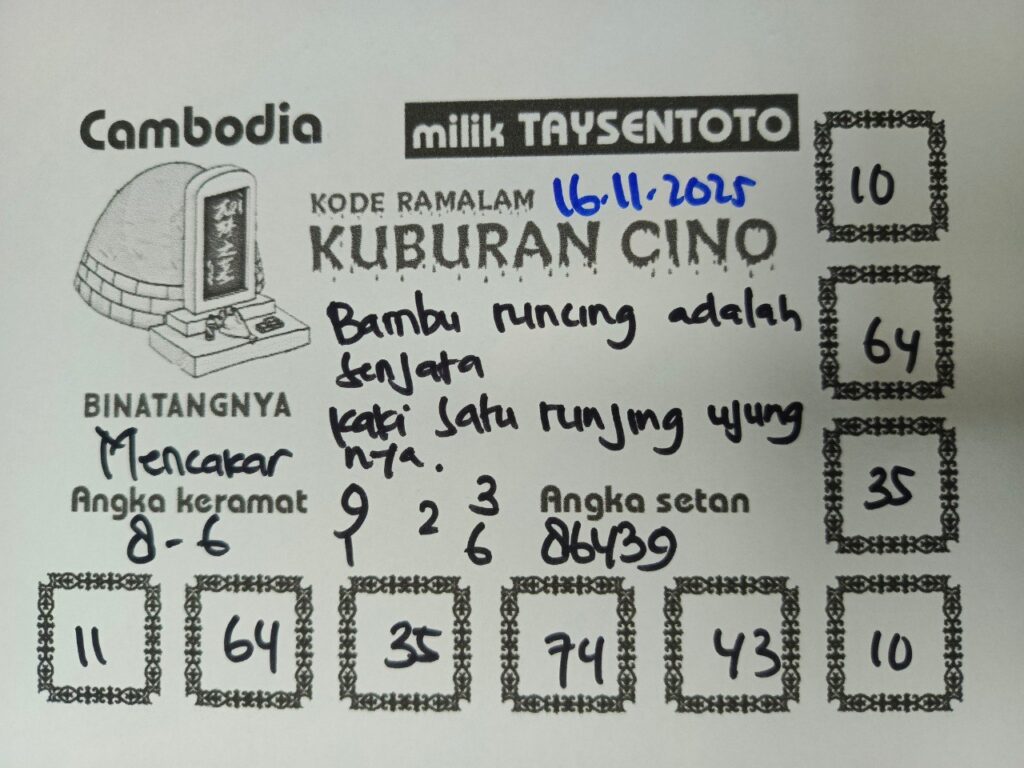 Cambodia
milik TAYSENTOTO
KODE RAMALAM 16.11.2025
KUBURAN CINO
Bambu runcing adalah
senjata
kaki satu runjing ujung
nya.
BINATANGNYA
Mencakar
Angka keramat
8-6
9 2 3
1 6
Angka setan
86439
10
64
35
11 64 35 74 43 10